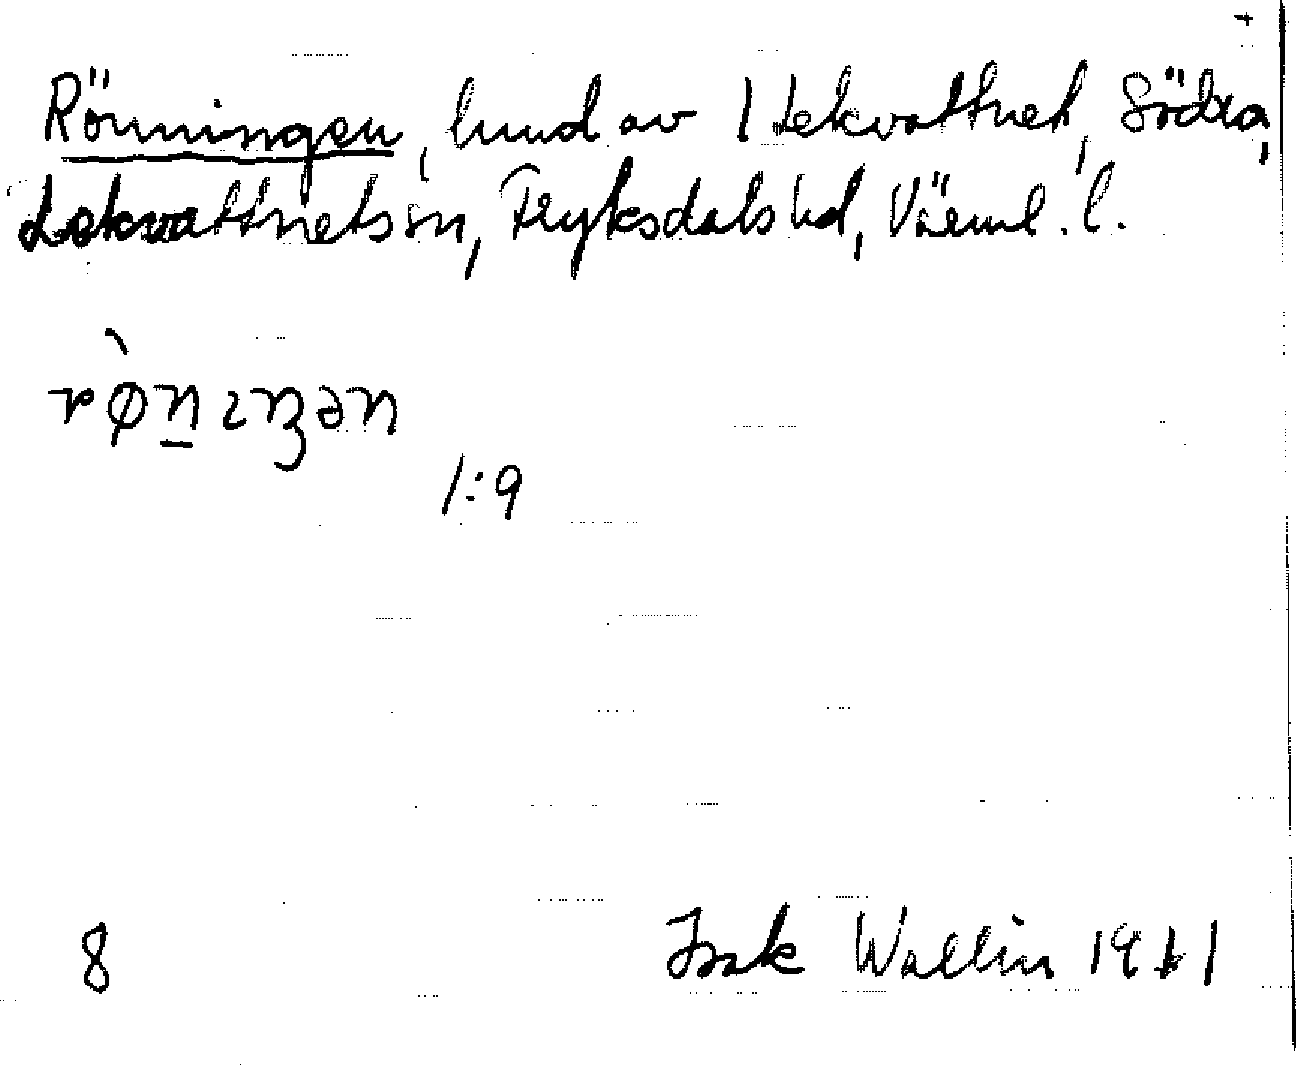 Rönningen, hmd av 1 Lekvattnet, Södra,
Lekvattnets sn, Fryksdals hd, Värml. l.
rø̀n̲ɪŋən
1:9
8
Isak Wallin 1941